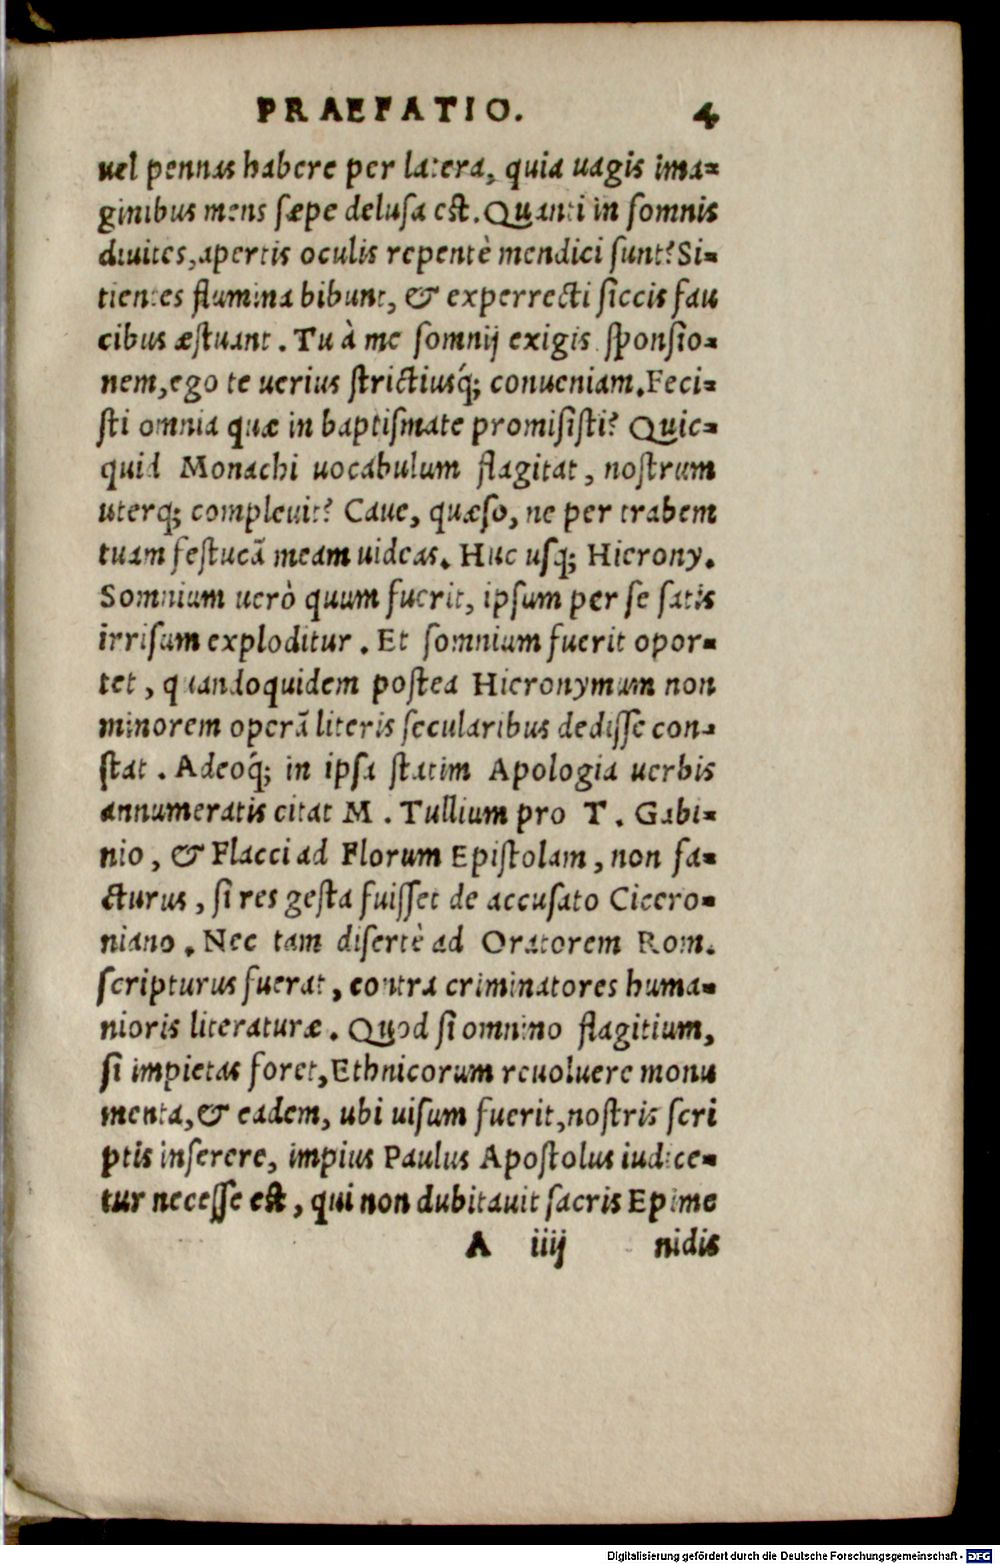 PRAEFATIO. 4
uel pennas habere per latera, quia uagis ima-
ginibus mens sæpe delusa est. Quanti in somnis
diuites, apertis oculis repentè mendici sunt? Si-
tientes flumina bibunt, & experrecti siccis fau
cibus æstuant. Tu à me somnij exigis sponsio-
nem, ego te uerius strictiusq́; conueniam. Feci-
sti omnia quæ in baptismate promisisti? Quic-
quid Monachi uocabulum flagitat, nostrum
uterq; compleuit? Caue, quæso, ne per trabem
tuam festucã meam uideas. Huc usq; Hierony.
Somnium uerò quum fuerit, ipsum per se satis
irrisum exploditur. Et somnium fuerit opor-
tet, quandoquidem postea Hieronymum non
minorem operã literis secularibus dedisse con-
stat. Adeoq́; in ipsa statim Apologia uerbis
annumeratis citat M. Tullium pro T. Gabi-
nio, & Flacci ad Florum Epistolam, non fa-
cturus, si res gesta fuisset de accusato Cicero-
niano. Nec tam disertè ad Oratorem Rom.
scripturus fuerat, contra criminatores huma-
nioris literaturæ. Quod si omnino flagitium,
si impietas foret, Ethnicorum reuoluere monu
menta, & eadem, ubi uisum fuerit, nostris scri
ptis inserere, impius Paulus Apostolus iudice-
tur necesse est, qui non dubitauit sacris Epime
A iiij nidis
Digitalisierung gefördert durch die Deutsche Forschungsgemeinschaft - DFG